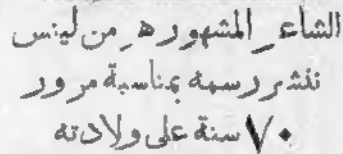 الشاعر المشهور ه‍. من لينس
ننشر رسمه بمناسبة مرور
٧٠ سنة على ولادته